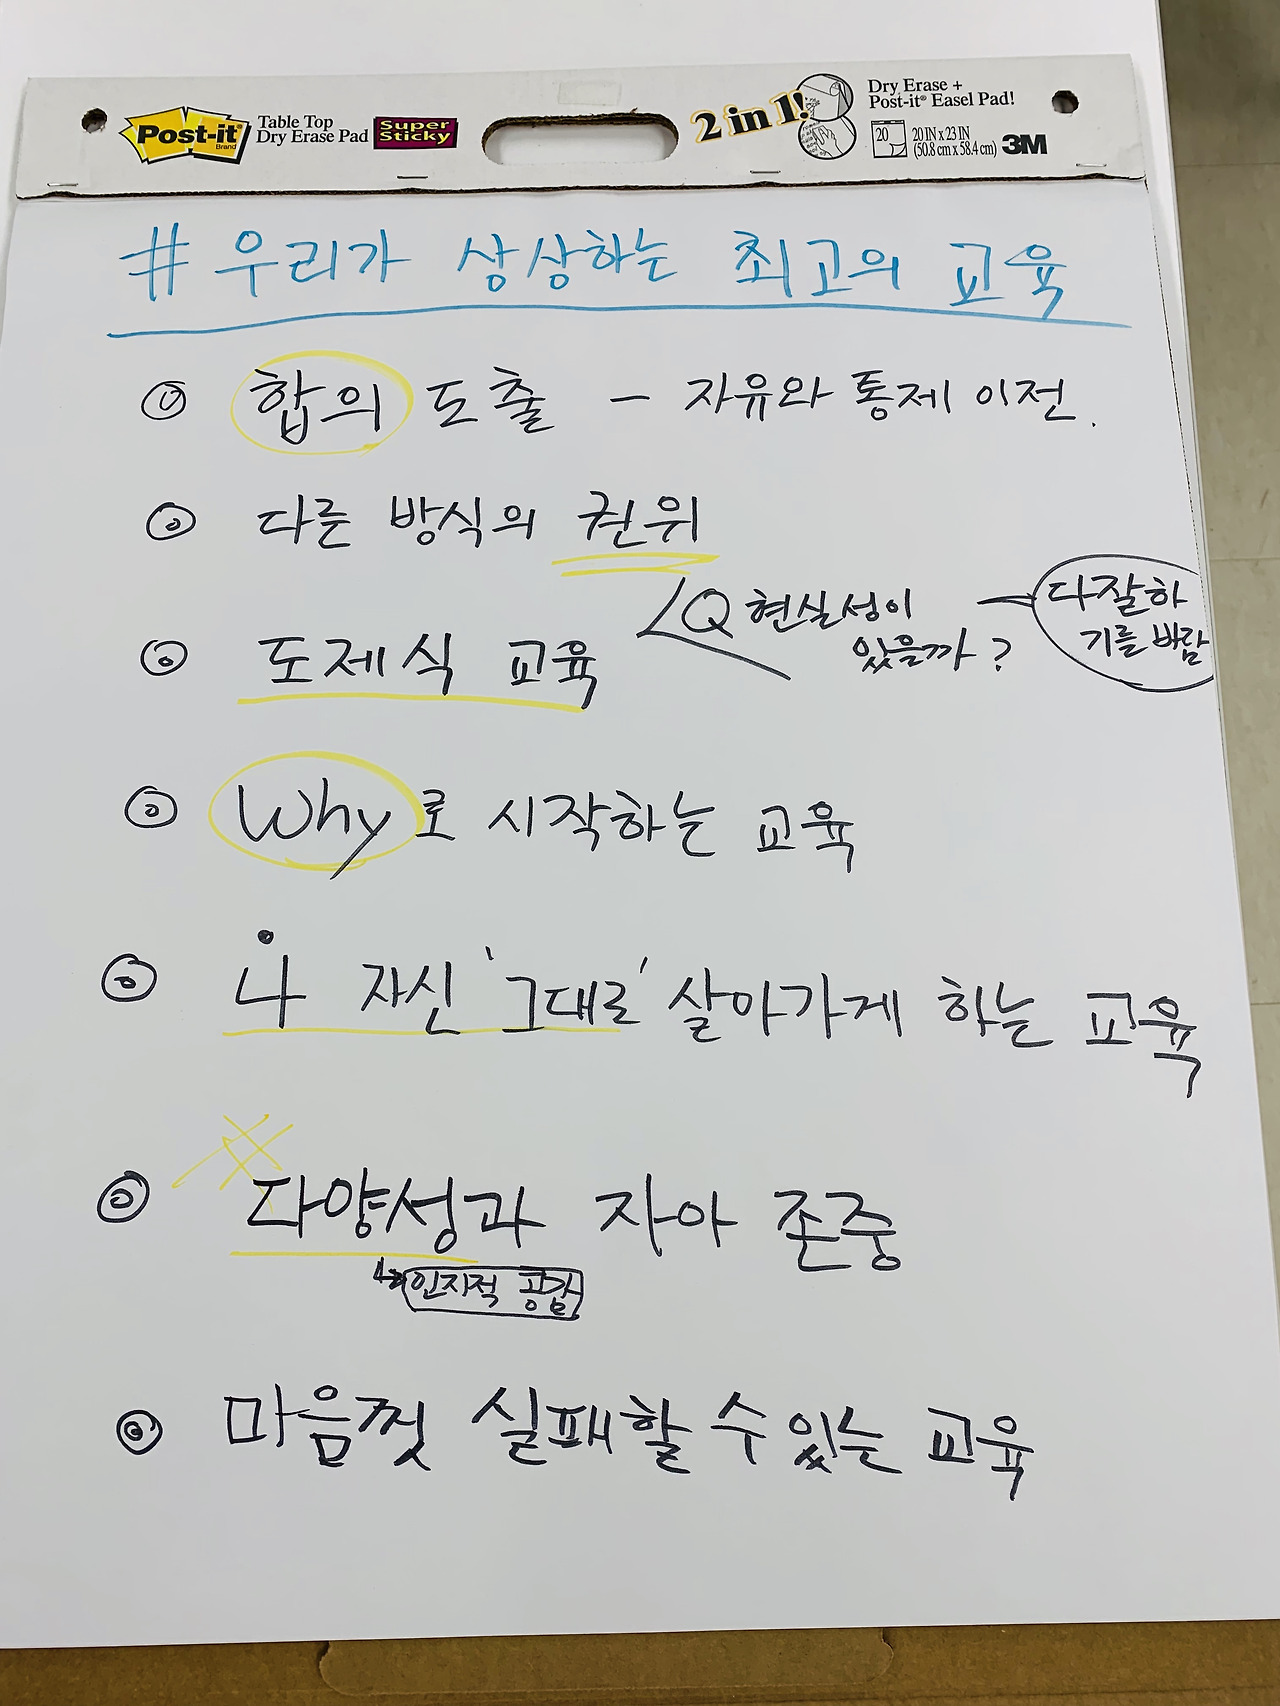 Post-it
Brand
Table Top
Dry Erase Pad
Super
Sticky
2 in 1!
Dry Erase +
Post-it® Easel Pad!
20
20 IN x 23 IN
(50.8 cm x 58.4 cm)
3M
# 우리가 상상하는 최고의 교육
합의 도출 - 자유와 통제 이전.
다른 방식의 권위
도제식 교육
Q 현실성이
있을까?
다잘하
기를 바람
Why로 시작하는 교육
나 자신 '그대로' 살아가게 하는 교육
다양성과 자아 존중
인지적 공감
마음껏 실패할 수 있는 교육